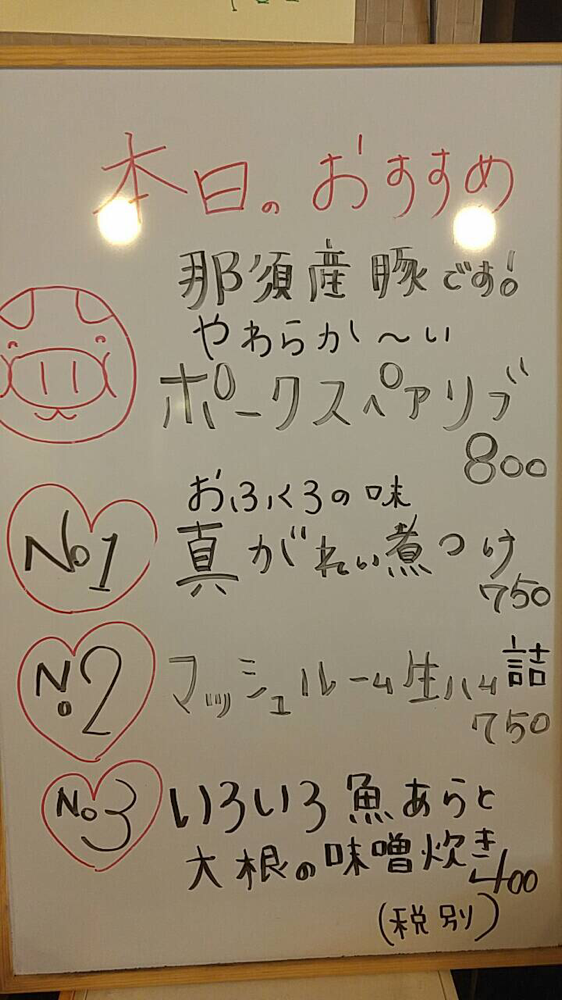 本日のおすすめ
那須産豚です!
やわらか〜い
ポークスペアリブ
800
おふくろの味
No1
真がれい煮つけ
750
No2
マッシュルーム生ハム詰
750
No3
いろいろ魚あらと
大根の味噌炊き
400
(税別)